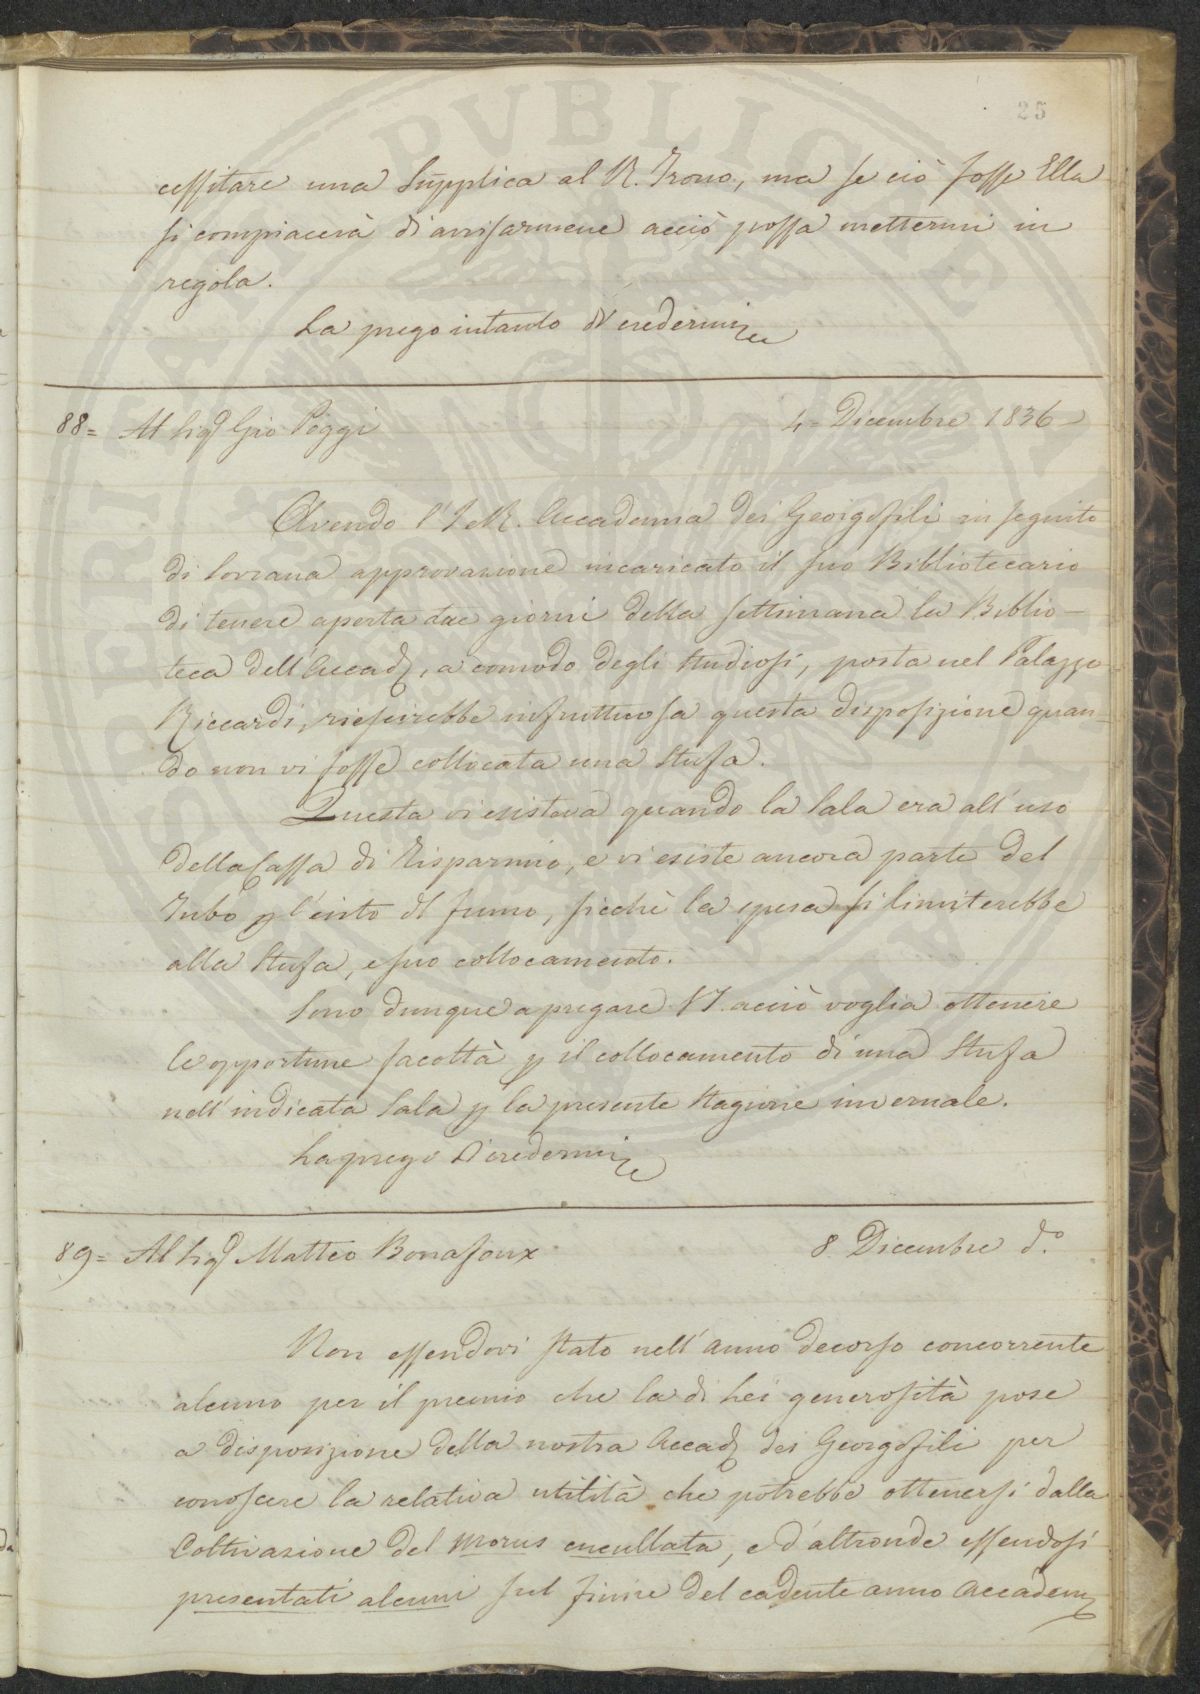 25
cessitare una Supplica al R. Trono, ma se ciò fosse Ella
si compiacerà di avvisarmene acciò possa mettermi in
regola.
La prego intanto di credermi
88= Al Sig.r Gio Poggi 4= Dicembre 1836
Avendo l'I e R. Accademia dei Georgofili in seguito
di Sovrana approvazione incaricato il suo Bibliotecario
di tenere aperta due giorni della settimana la Biblio-
teca dell'Accad., a comodo degli Studiosi, posta nel Palazzo
Riccardi, riescirebbe infruttuosa questa disposizione quan-
do non vi fosse collocata una Stufa.
Questa vi esisteva quando la Sala era all'uso
della Cassa di Risparmio, e vi esiste ancora parte del
Tubo p l'esito del fumo, sicchè la spesa si limiterebbe
alla Stufa, e suo collocamento.
Sono dunque a pregare VS. acciò voglia ottenere
le opportune facoltà p il collocamento di una Stufa
nell'indicata Sala p la presente Stagione invernale.
La prego di credermi
89= Al Sig.r Matteo Bonafoux 8 Dicembre d.o
Non essendovi stato nell'anno decorso concorrente
alcuno per il premio che la di Lei generosità pose
a disposizione della nostra Accad. dei Georgofili per
conoscere la relativa utilità che potrebbe ottenersi dalla
Coltivazione del Morus cucullata, e d'altronde essendosi
presentati alcuni sul finire del cadente anno Accadem
PVBLICAE